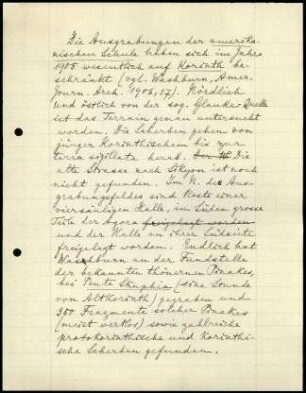 Die Ausgrabungen der amerika-
nischen Schule haben sich im Jahre
1905 wesentlich auf Korinth be-
schränkt (vgl. Washburn, Amer.
Journ. Arch. 1906, 17). Nördlich
und östlich von der sog. Glauke-Quelle
ist das Terrain genau untersucht
worden. Die Scherben gehen von
jünger Korinthischem bis zur
terra sigillata herab. Die
alte Strasse nach Sikyon ist noch
nicht gefunden. Im N. des Aus-
grabungsfeldes sind Reste einer
viersäuligen Halle, im Süden grosse
Teile der Agora freigelegt worden
und der Halle an ihrer Südseite
freigelegt worden. Endlich hat
Washburn an der Fundstelle
der bekannten thönernen Pinakes,
bei Pente Skuphia (eine Stunde
von Altkorinth) gegraben und
350 Fragmente solcher Pinakes
(meist wertlos) sowie zahlreiche
protokorinthische und korinthi-
sche Scherben gefunden.